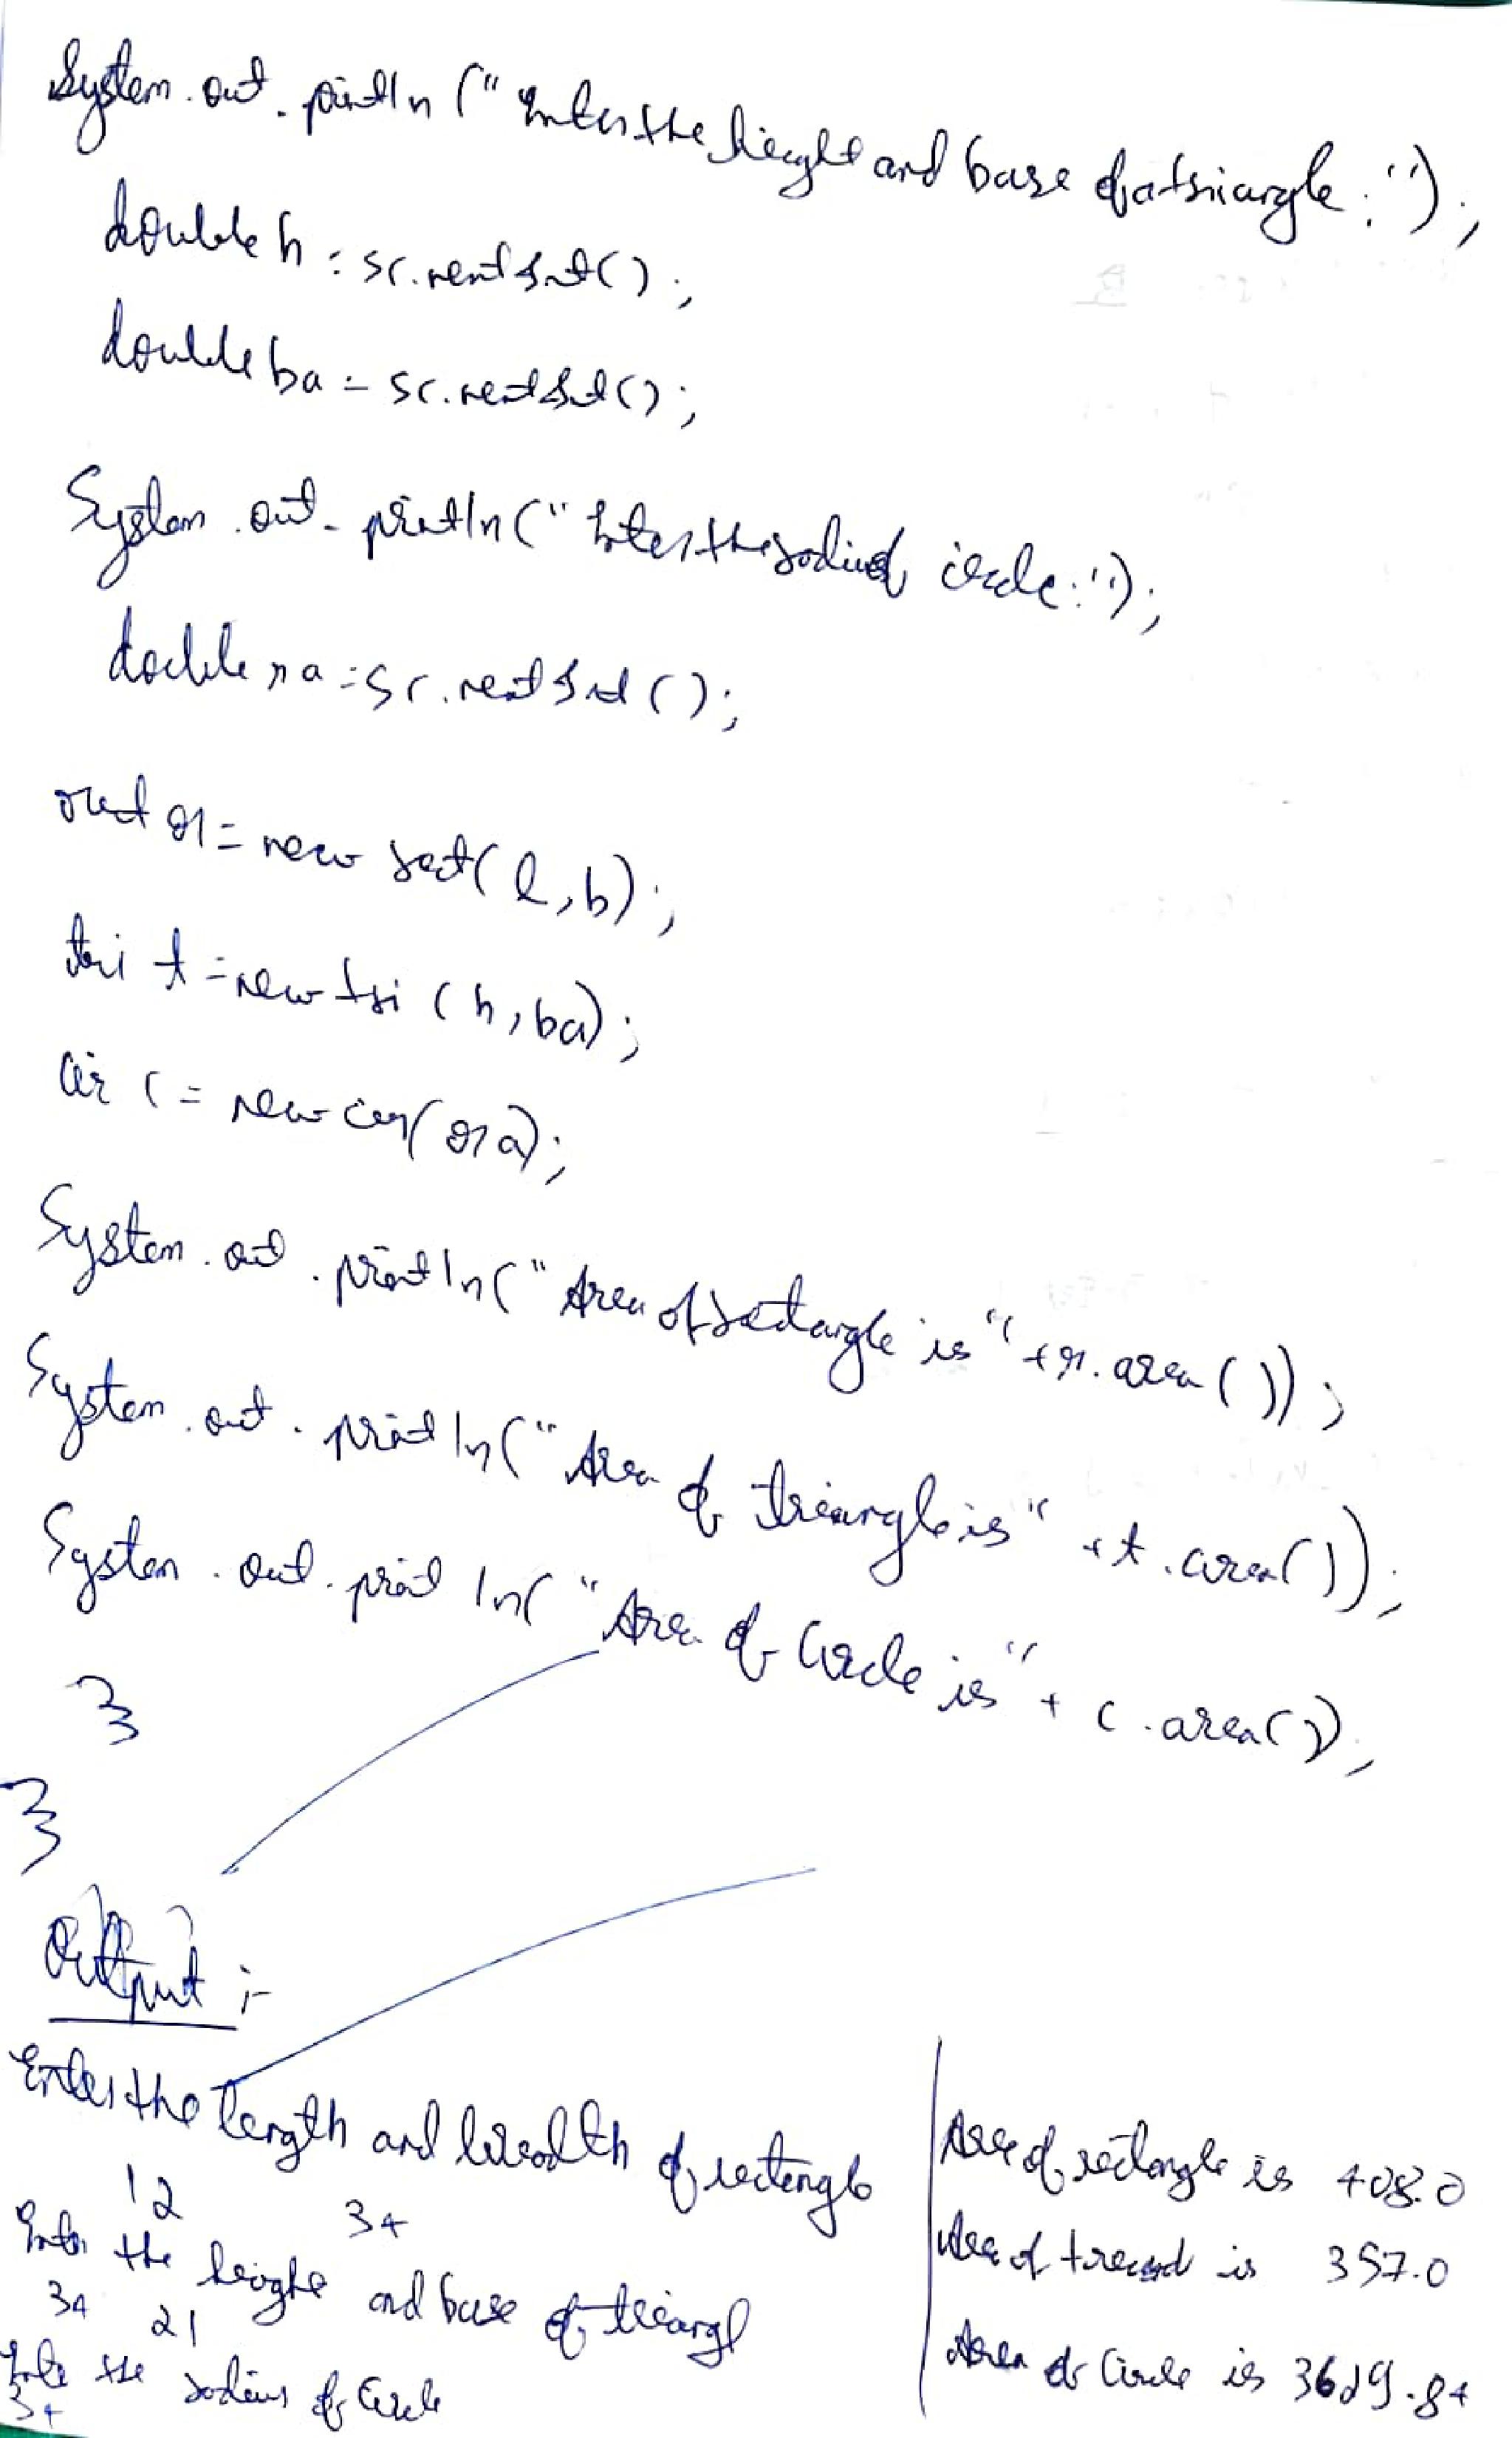 System.out.println("Enter the height and base of a triangle:");
double h = sc.nextInt();
double ba = sc.nextInt();
System.out.println("Enter the radius of circle:");
double ra = sc.nextInt();
rect r = new rect(l,b);
tri t = new tri (h,ba);
cir c = new cir(ra);
System.out.println("Area of rectangle is"+r.area());
System.out.println("Area of triangle is"+t.area());
System.out.println("Area of Circle is"+ c.area());
}
}
Output :-
Enter the length and breadth of rectangle
12 34
Enter the height and base of triangl
34 21
Enter the radius of Circle
34
Area of rectangle is 408.0
Area of is 357.0
Area of Circle is 3629.84